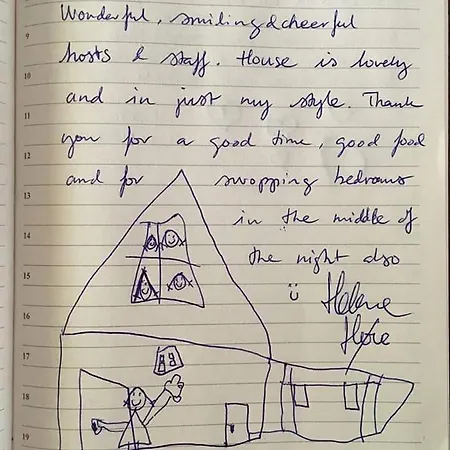 Wonderful, smiling & cheerful
9
hosts & staff. House is lovely
10
and in just my style. Thank
11
you for a good time, good food
12
and for swopping bedrooms
13
in the middle of
14
the night also
15
16
17
18
19